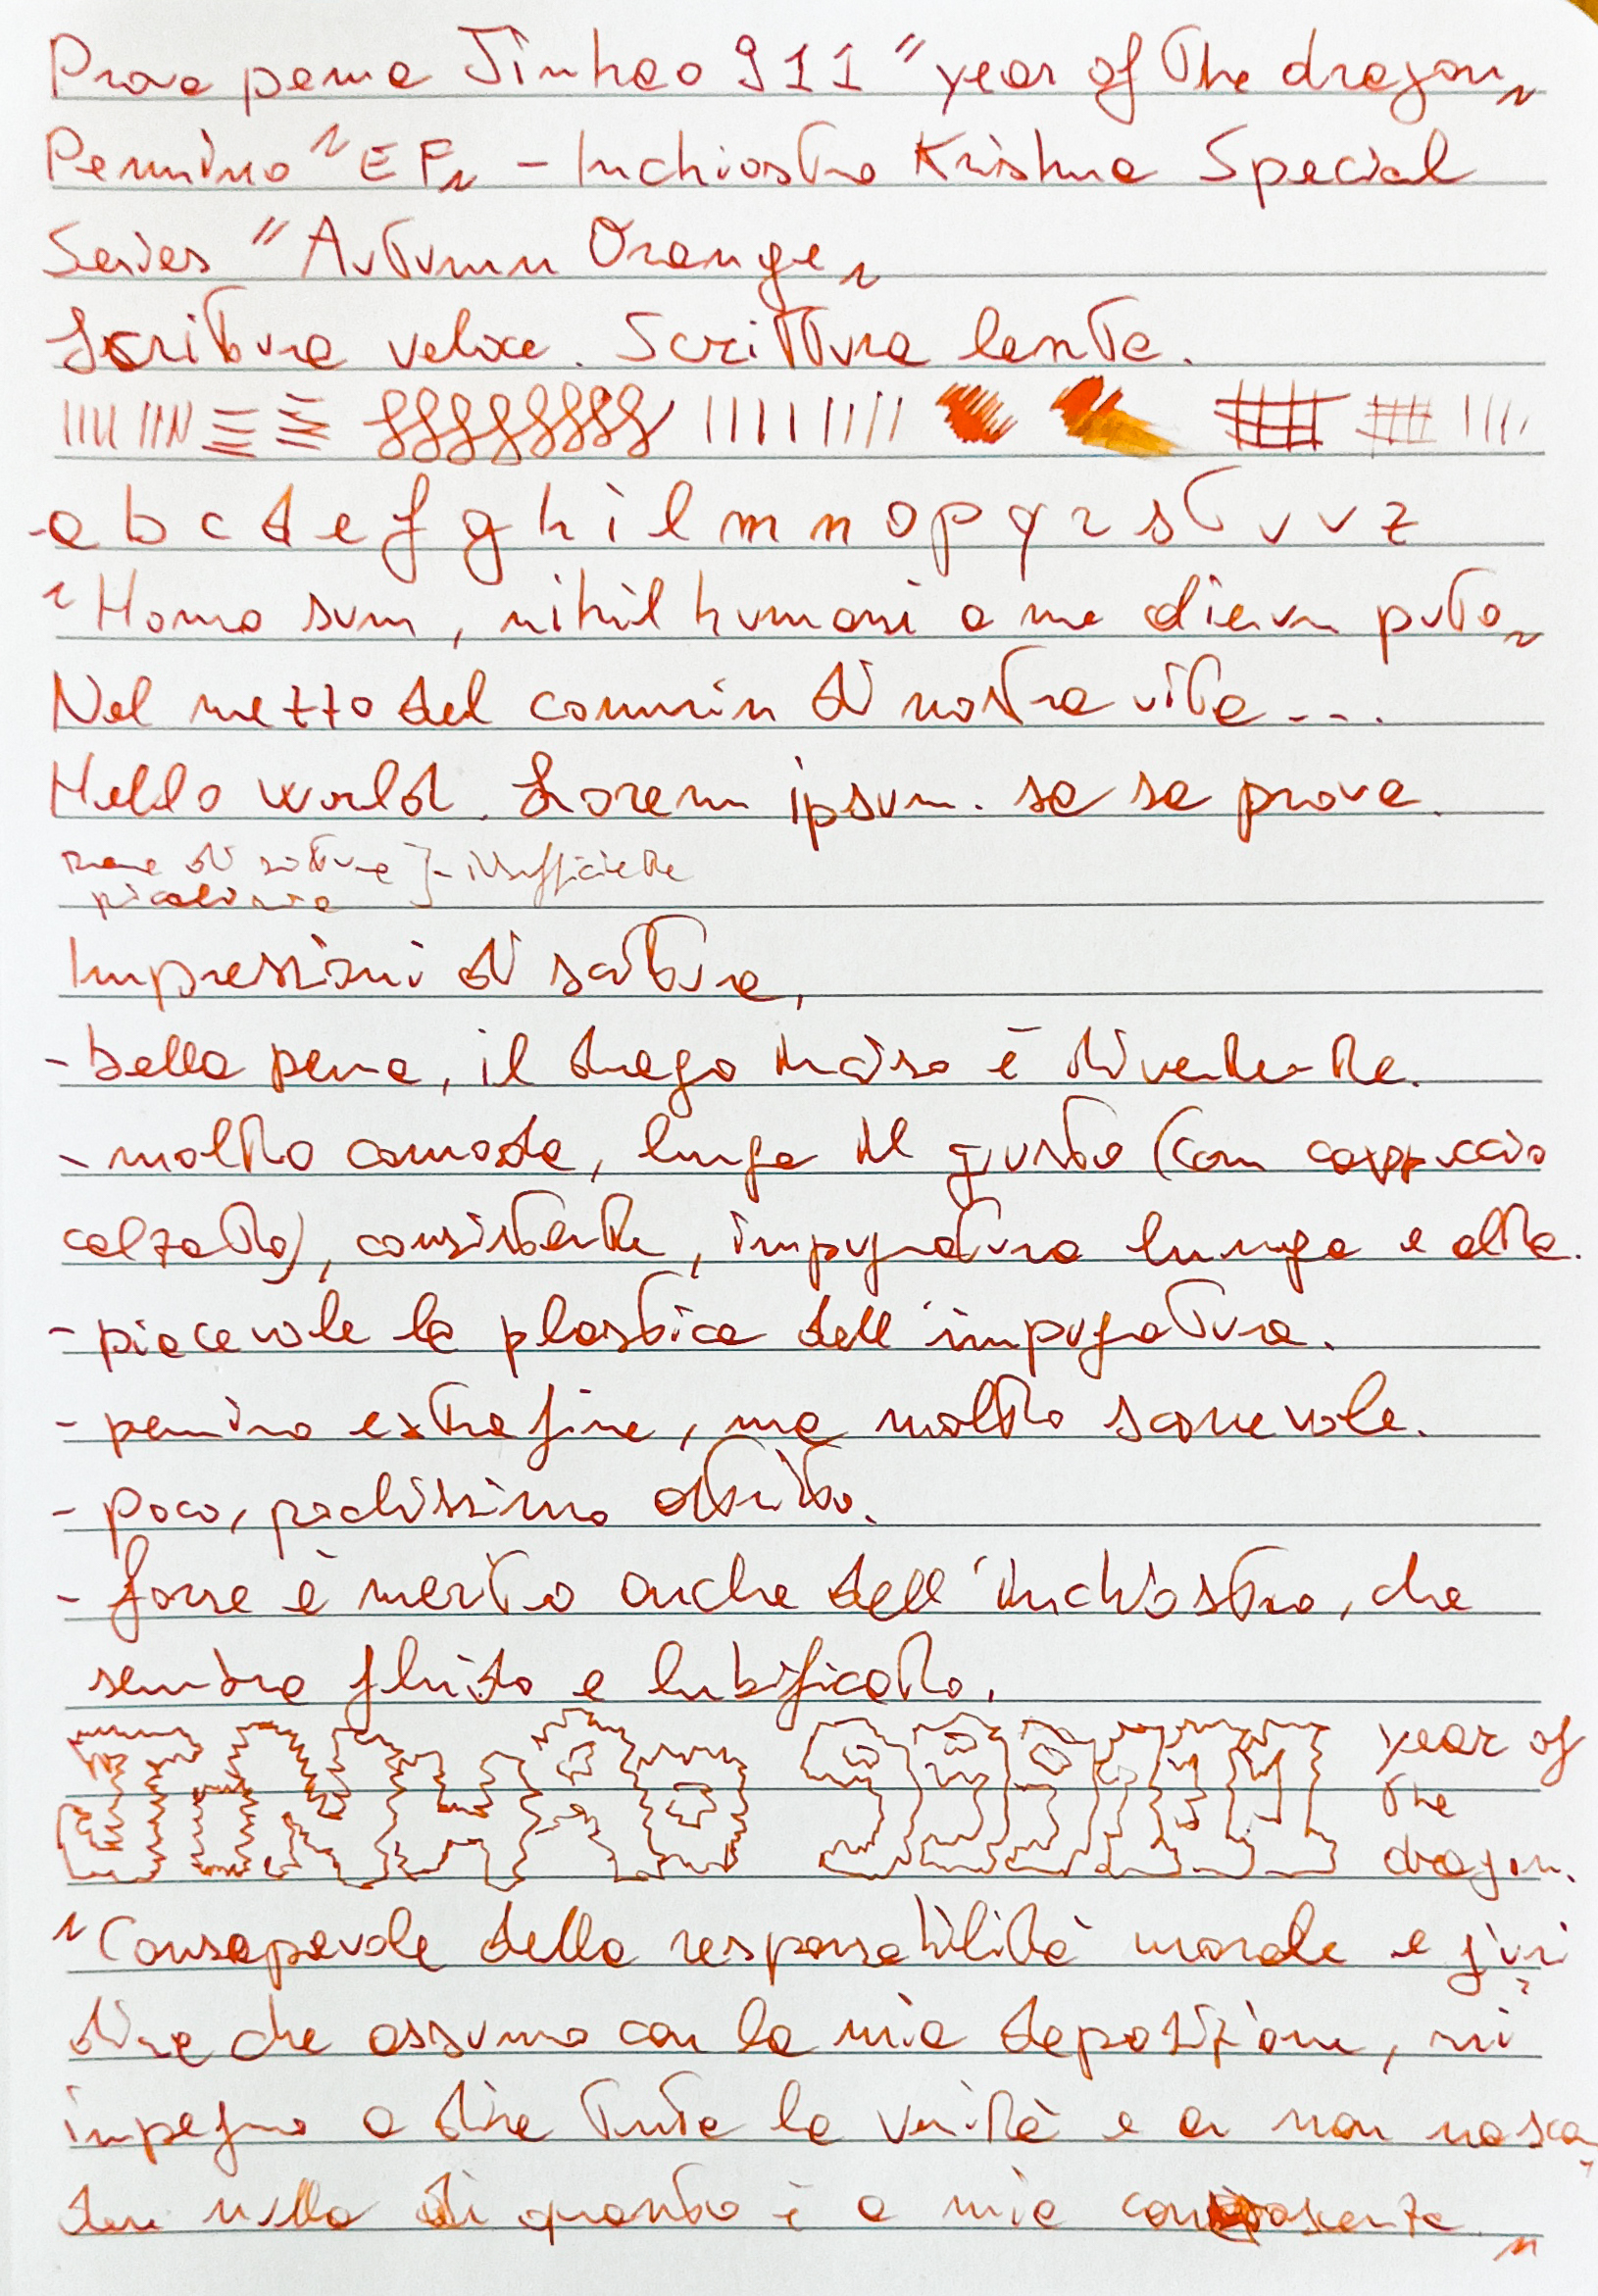 Prova penna Jinhao 911 "year of the dragon"
Pennino "EF" - Inchiostro Krishna Special
Series "Autumn Orange"
Scrittura veloce. Scrittura lenta.
a b c d e f g h i l m n o p q r s t u v z
"Homo sum, nihil humani a me alienum puto"
Nel mezzo del cammin di nostra vita....
Hello world. Lorem ipsum. sa sa prova.
prova di scrittura } - insufficiente
piccolissima
Impressioni di scrittura,
- bella penna, il drago inciso è divertente.
- molto comoda, lunga il giusto (con cappuccio
calzato), consistente, impugnatura lunga e alta.
- piacevole la plastica dell'impugnatura.
- pennino extra fine, ma molto scorrevole.
- poco, pochissimo attrito.
- forse è merito anche dell'inchiostro, che
sembra fluido e lubrificato.
JINHAO 911 year of
the
dragon.
"Consapevole della responsabilità morale e giuri
dica che assumo con la mia deposizione, mi
impegno a dire tutta la verità e a non nascon
dere nulla di quanto è a mia conoscenza."